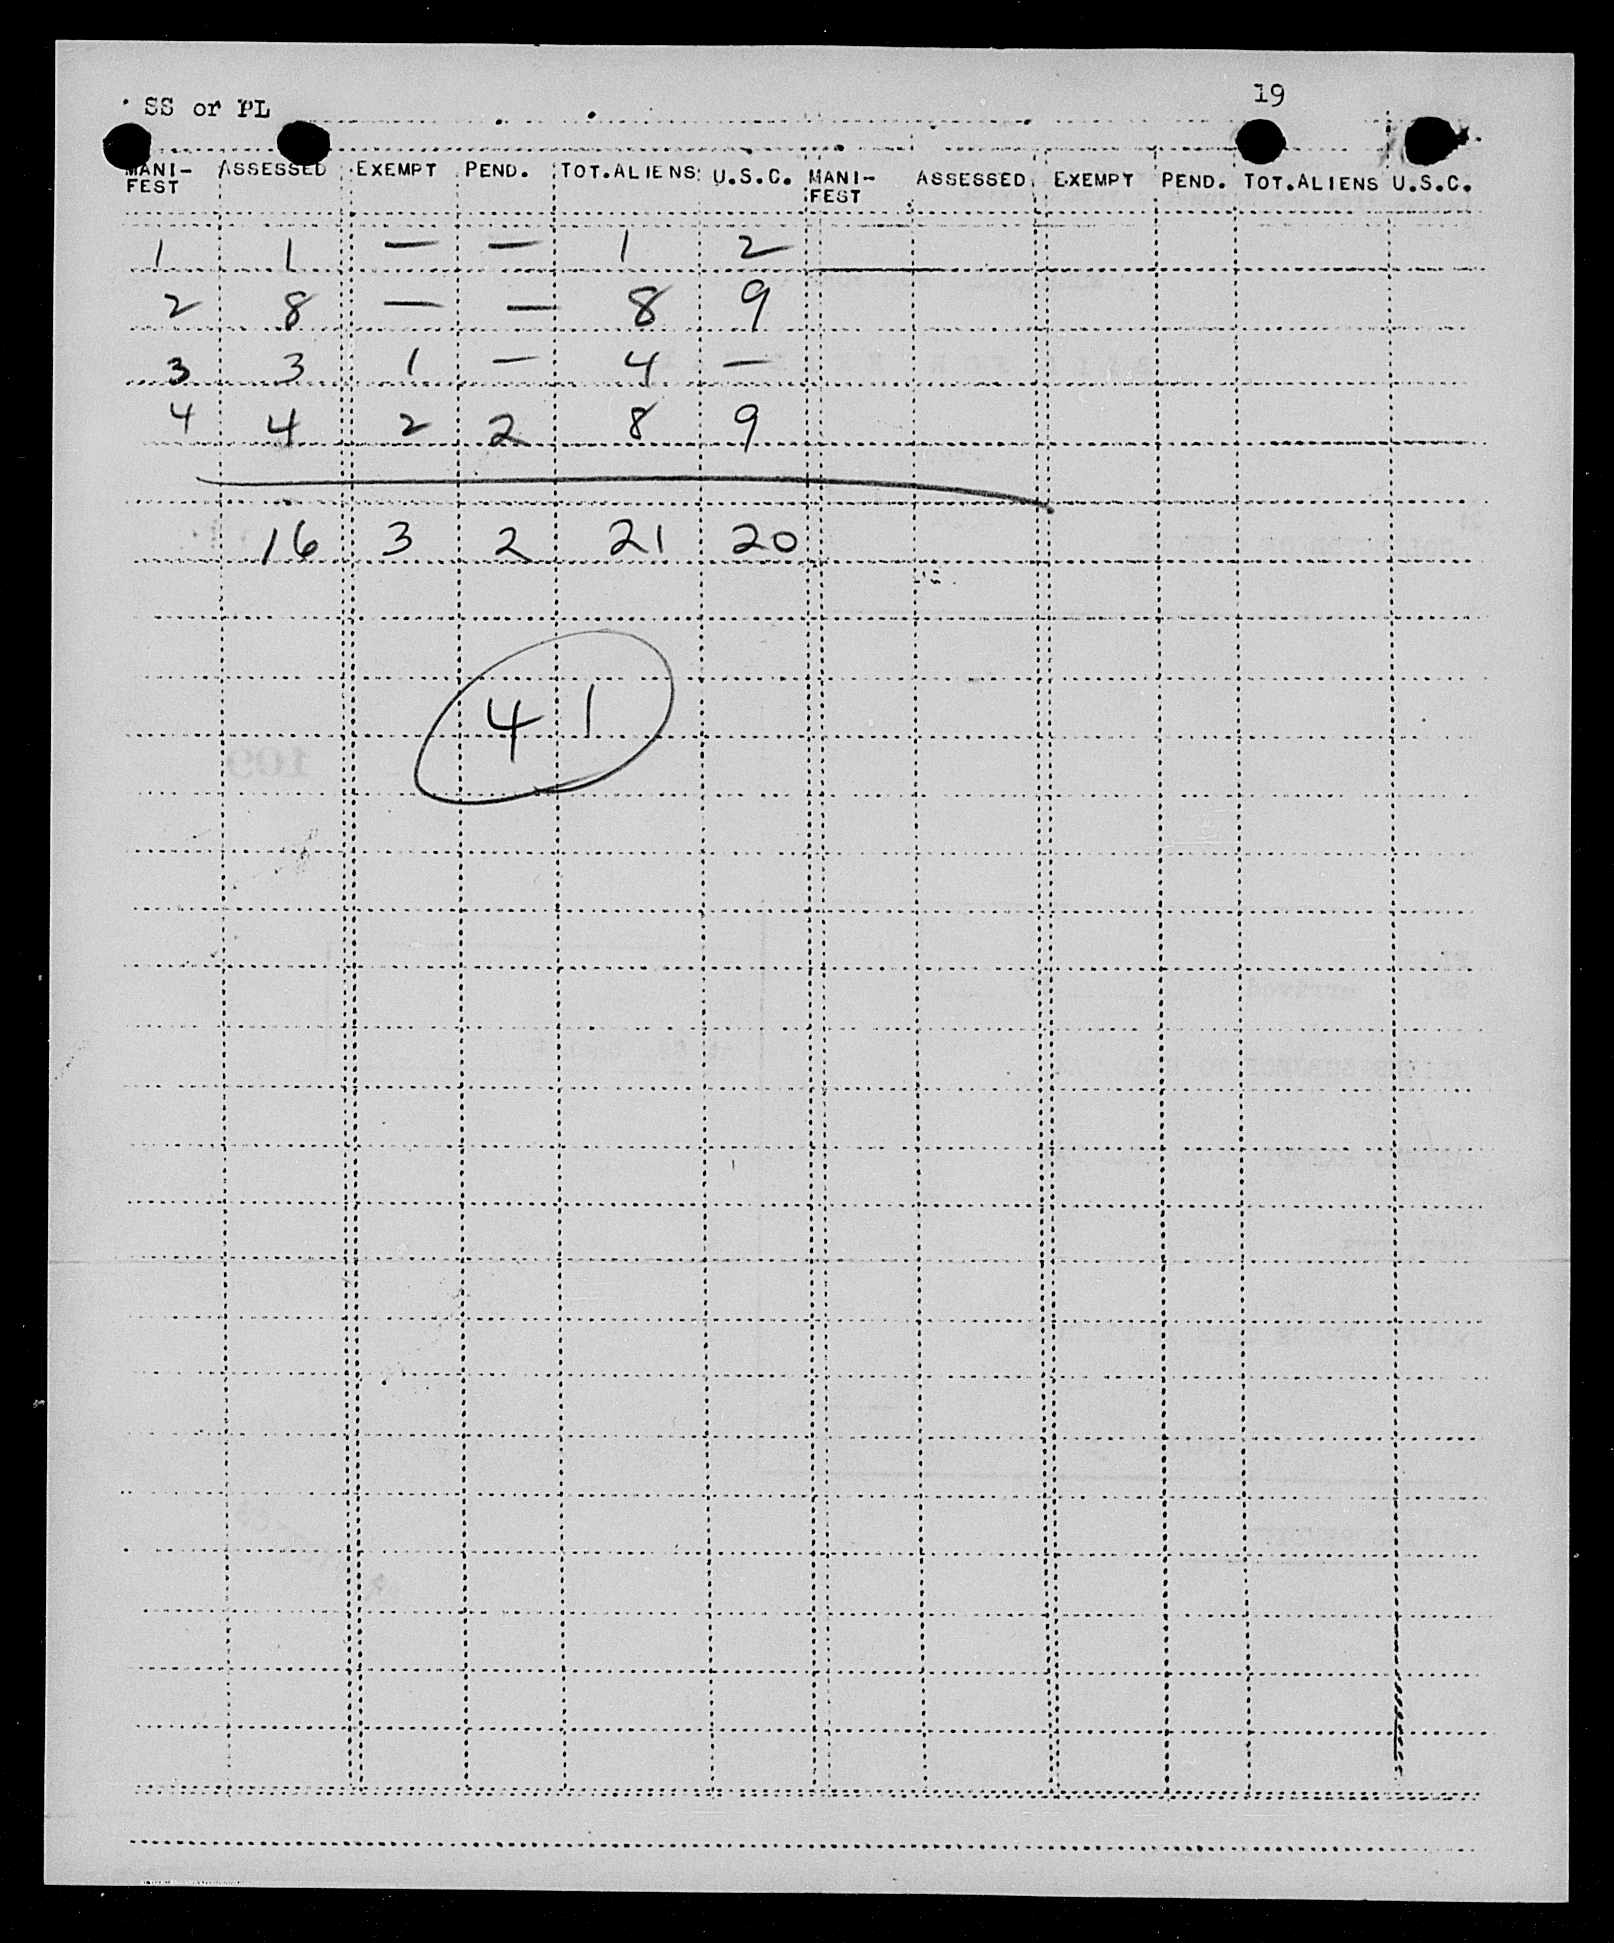 SS or PL 19
MANI-FEST ASSESSED EXEMPT PEND. TOT.ALIENS U.S.C. MANI-FEST ASSESSED EXEMPT PEND. TOT.ALIENS U.S.C.
1 1 — — 1 2
2 8 — — 8 9
3 3 1 — 4 —
4 4 2 2 8 9
16 3 2 21 20
41